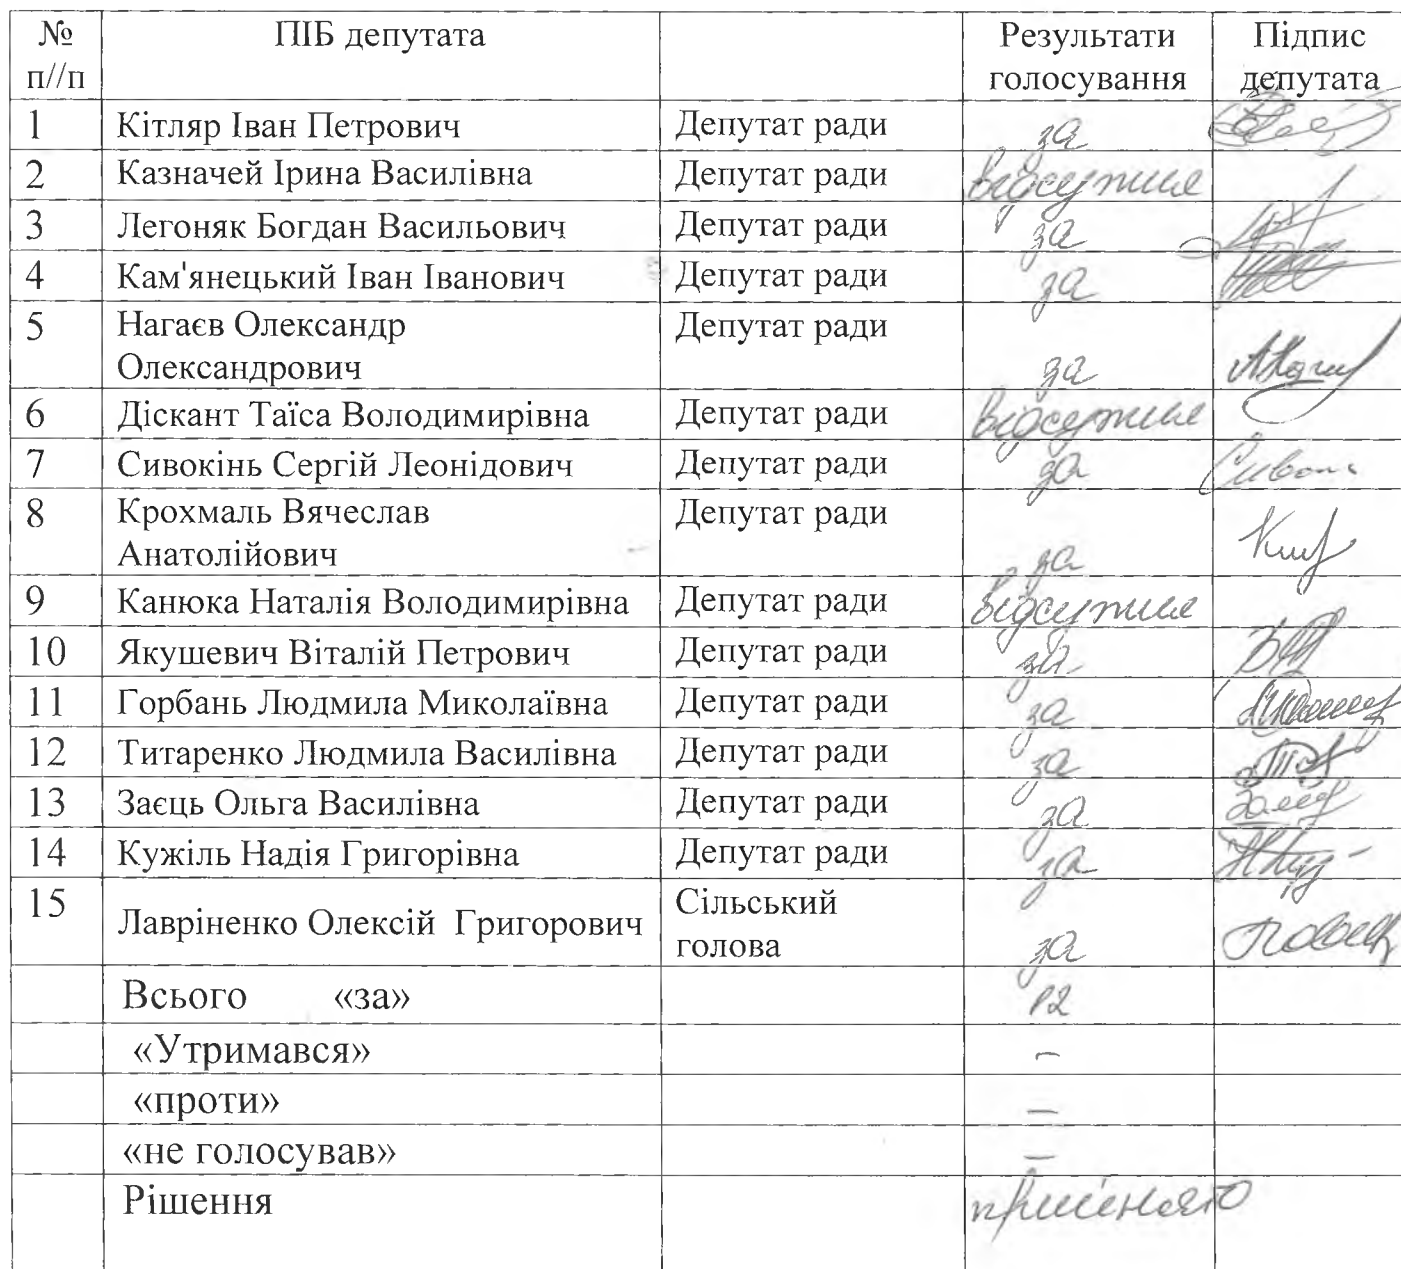 № п//п ПІБ депутата Результати голосування Підпис депутата
1 Кітляр Іван Петрович Депутат ради за
2 Казначей Ірина Василівна Депутат ради відсутня
3 Легоняк Богдан Васильович Депутат ради за
4 Кам'янецький Іван Іванович Депутат ради за
5 Нагаєв Олександр Депутат ради
Олександрович за
6 Діскант Таїса Володимирівна Депутат ради відсутня
7 Сивокінь Сергій Леонідович Депутат ради за
8 Крохмаль Вячеслав Депутат ради
Анатолійович за
9 Канюка Наталія Володимирівна Депутат ради відсутня
10 Якушевич Віталій Петрович Депутат ради за
11 Горбань Людмила Миколаївна Депутат ради за
12 Титаренко Людмила Василівна Депутат ради за
13 Заєць Ольга Василівна Депутат ради за
14 Кужіль Надія Григорівна Депутат ради за
15 Лавріненко Олексій Григорович Сільський голова за
Всього «за» 12
«Утримався» –
«проти» –
«не голосував» –
Рішення